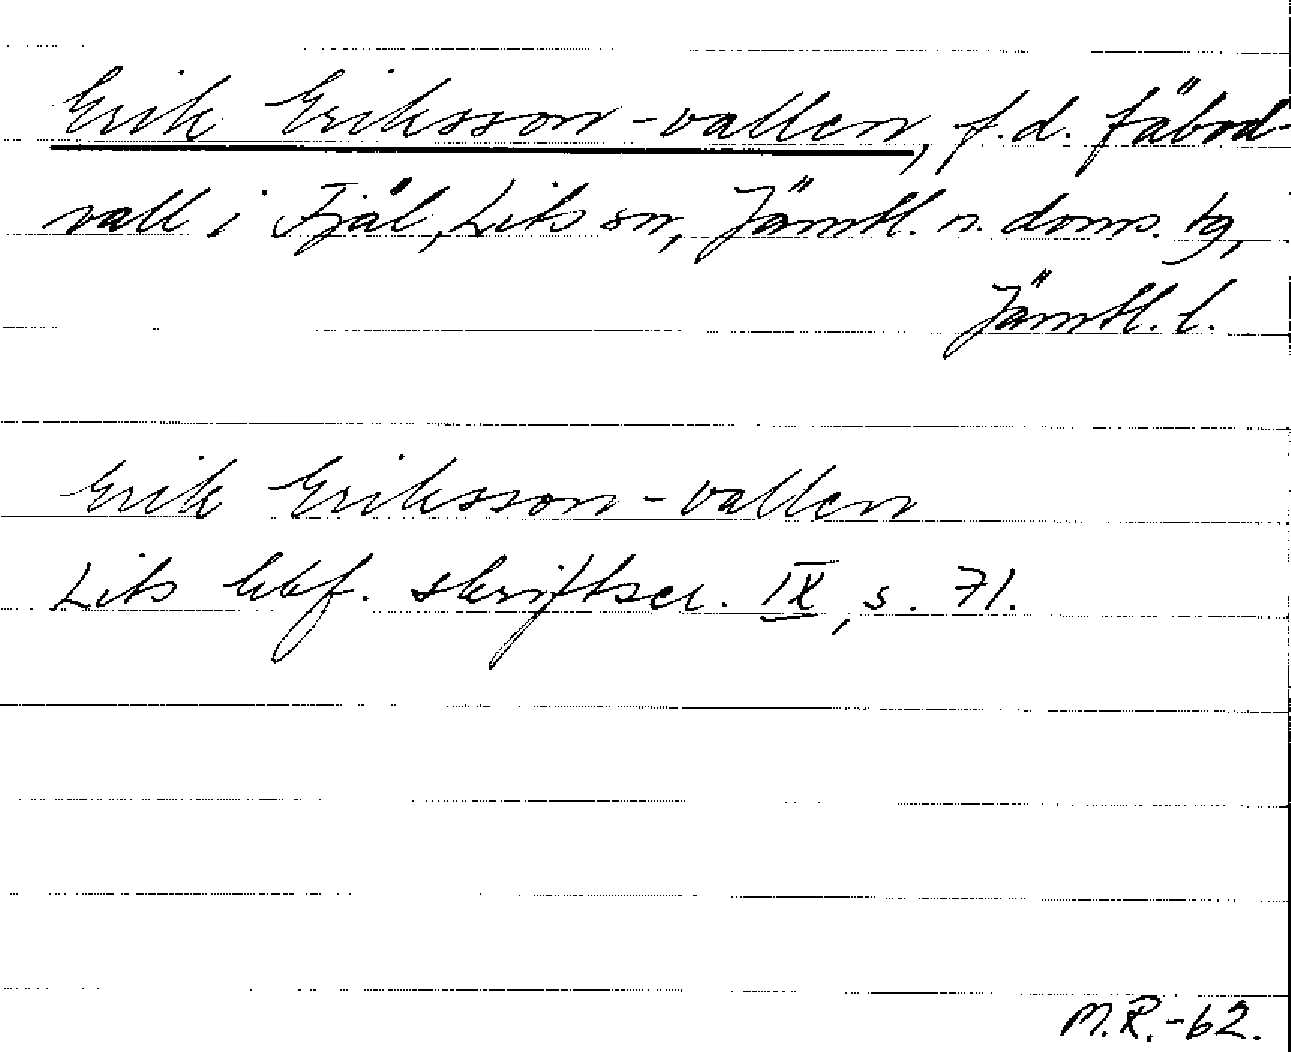 Erik Eriksson-vallen, f.d. fäbod-
vall i Fjäl, Lits sn, Jämtl. n. doms. tg,
Jämtl. l.
Erik Eriksson-vallen
Lits hbf. skriftser. IX, s. 71.
M.R.-62.